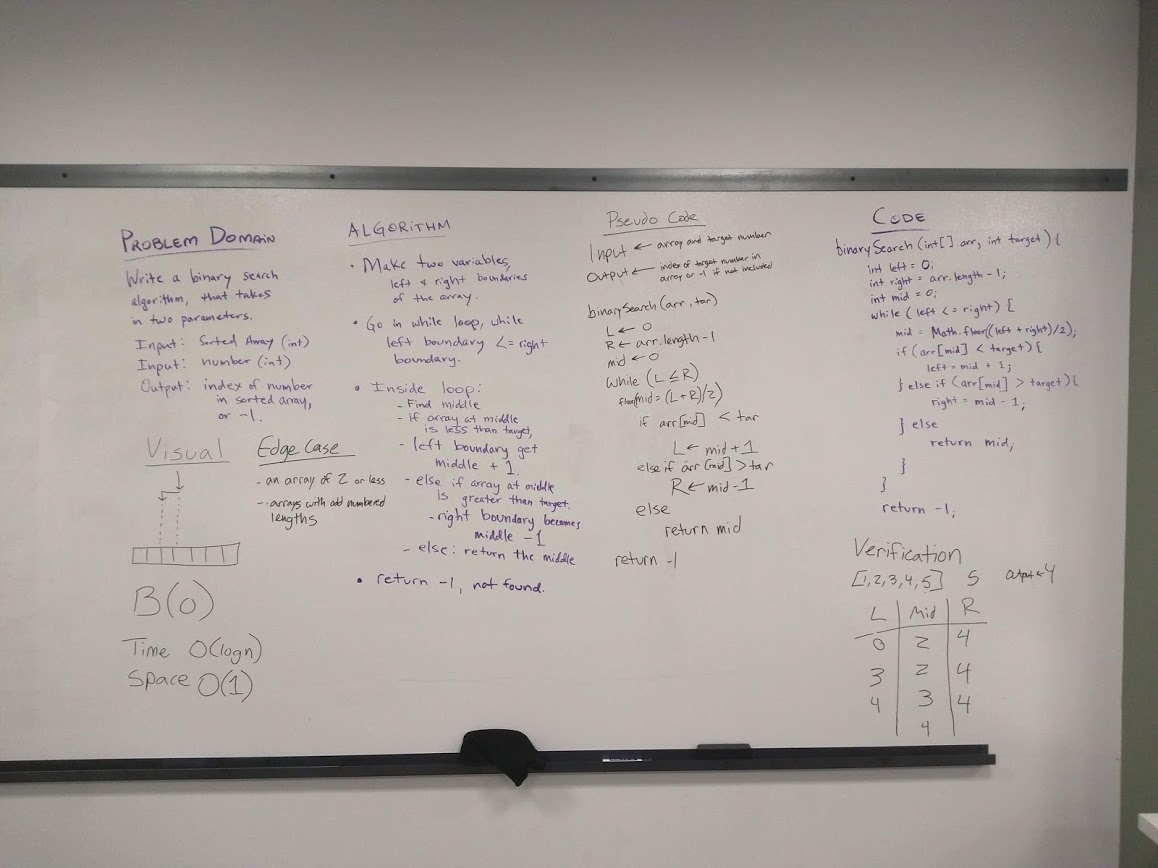 PROBLEM DOMAIN
Write a binary search
algorithm, that takes
in two parameters.
Input: Sorted Array (int)
Input: number (int)
Output: index of number
in sorted array,
or -1.
Visual
Edge Case
- an array of 2 or less
- arrays with odd numbered
lengths
B(O)
Time O(logn)
Space O(1)
ALGORITHM
• Make two variables,
left & right boundaries
of the array.
• Go in while loop, while
left boundary <= right
boundary.
• Inside loop:
- Find middle
- if array at middle
is less than target,
- left boundary get
middle + 1.
- else if array at middle
is greater than target.
- right boundary becomes
middle -1
- else: return the middle
• return -1, not found.
Pseudo Code
Input ← array and target number
Output ← index of target number in
array or -1 if not included
binarySearch(arr, tar)
L ← 0
R ← arr.length-1
mid ← 0
while (L ≤ R)
floor(mid = (L+R)/2)
if arr[mid] < tar
L ← mid+1
else if arr[mid] > tar
R ← mid-1
else
return mid
return -1
CODE
binarySearch (int[] arr, int target) {
int left = 0;
int right = arr.length-1;
int mid = 0;
while (left <= right) {
mid = Math.floor((left + right)/2);
if (arr[mid] < target) {
left = mid + 1;
} else if (arr[mid] > target) {
right = mid - 1;
} else
return mid;
}
}
return -1;
Verification
[1,2,3,4,5] 5 output ← 4
L Mid R
0 2 4
3 2 4
4 3 4
4